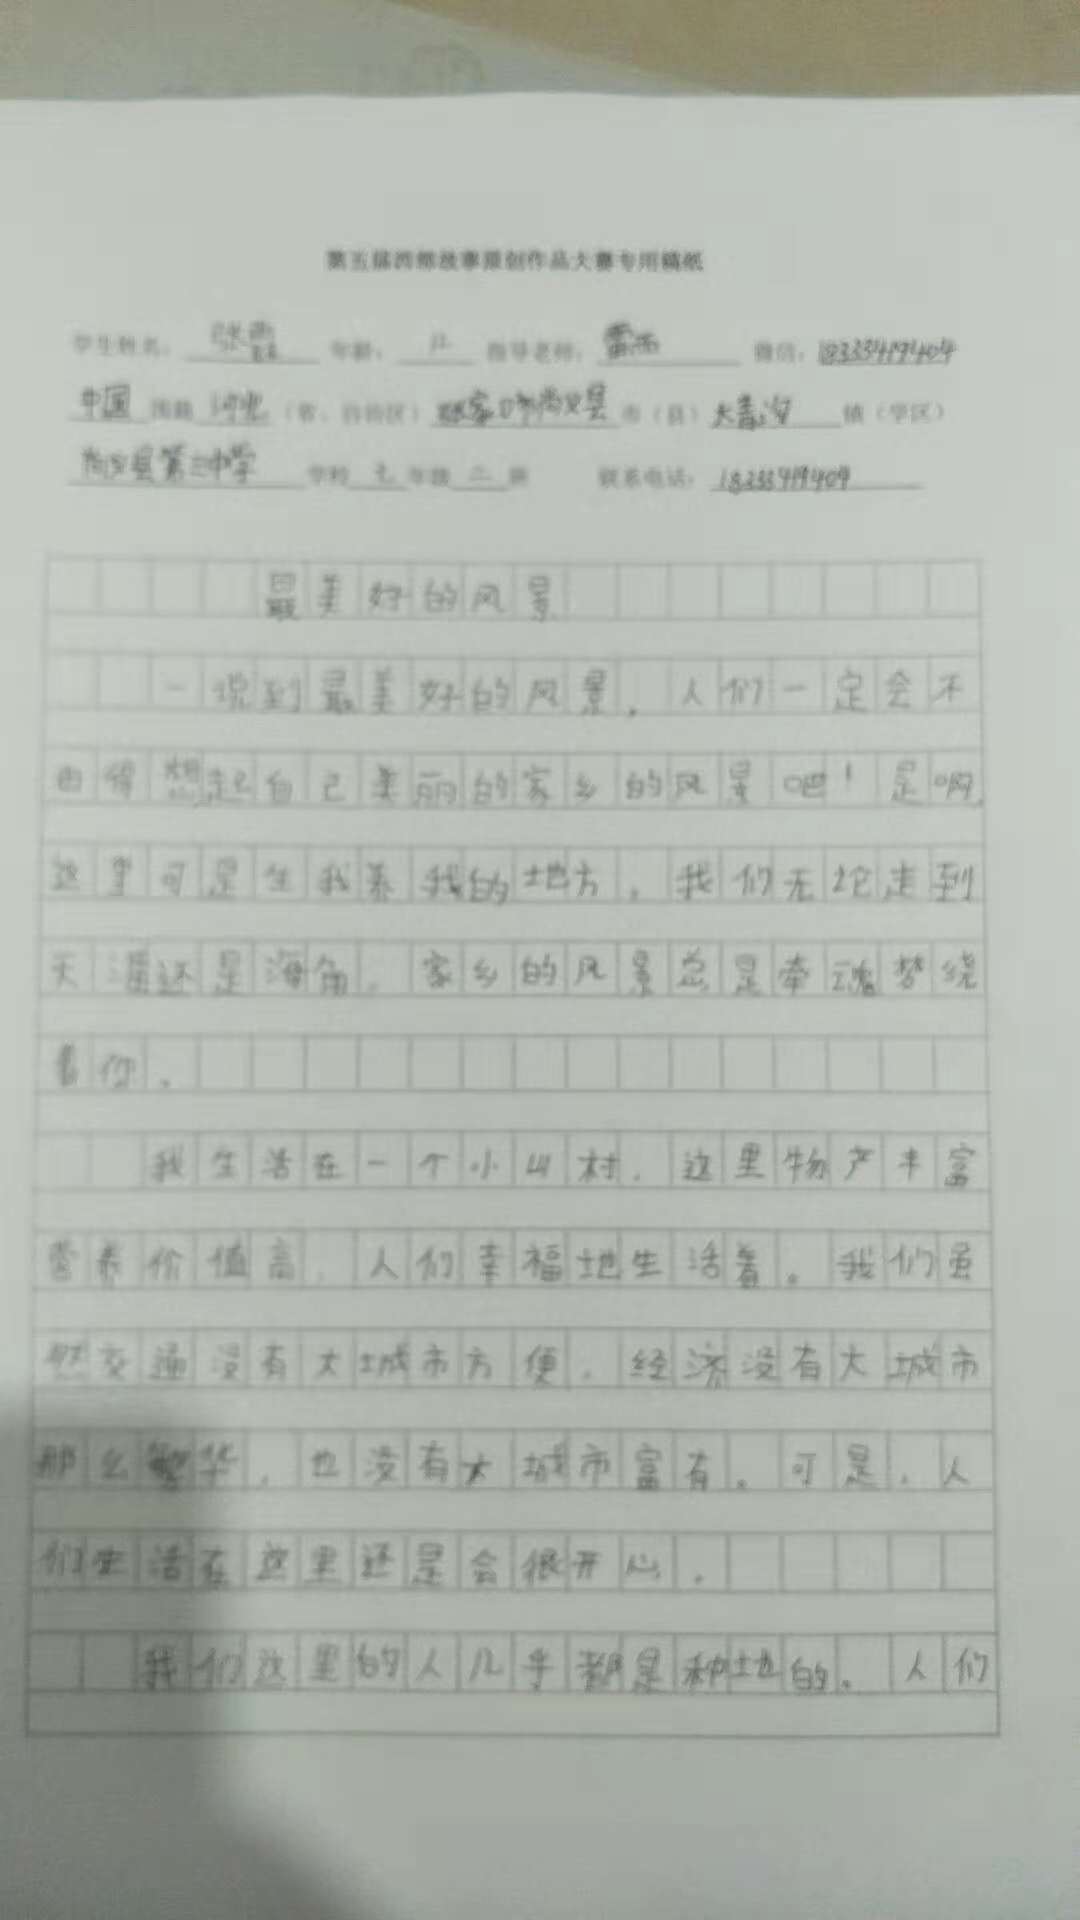 第五届西部故事原创作品大赛专用稿纸
学生姓名： 张 年龄： 指导老师： 雷雨 微信：
中国 国籍 河北 （省、自治区） 张家口市尚义县 市（县） 大青沟 镇（学区）
尚义县第三中学 学校 七 年级 二 班 联系电话： 18333419409
最美好的风景
一说到最美好的风景，人们一定会不
由得想起自己美丽的家乡的风景吧！是啊，
这里可是生我养我的地方，我们无论走到
天涯还是海角，家乡的风景总是牵魂梦绕
着你。
我生活在一个小山村，这里物产丰富
营养价值高，人们幸福地生活着。我们虽
然交通没有大城市方便，经济没有大城市
那么繁华，也没有大城市富有。可是，人
们生活在这里还是会很开心。
我们这里的人几乎都是种地的。人们